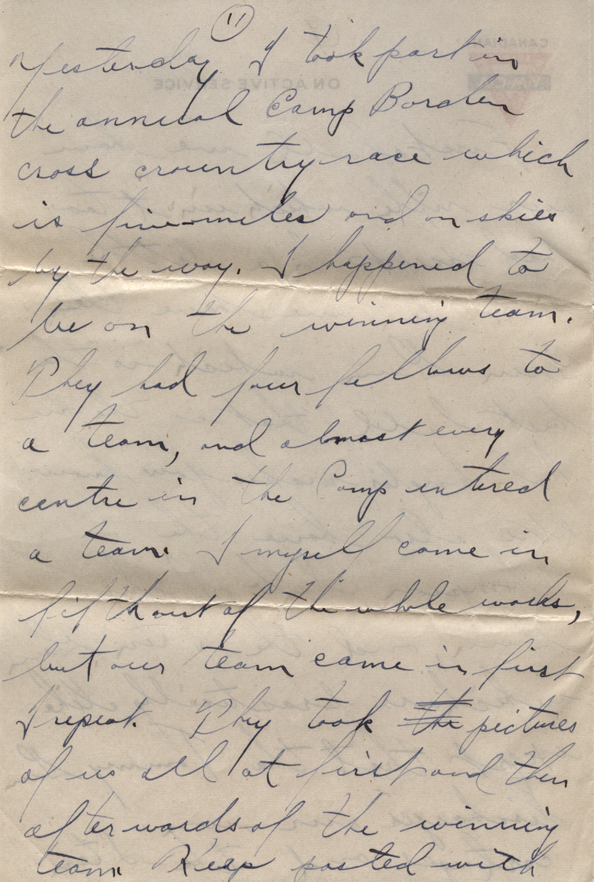 11
Yesterday I took part in
the annual Camp Borden
cross crountry race which
is five-miles and on skies
by the way. I happened to
be on the winning team.
They had four fellows to
a team, and almost every
centre in the Camp entered
a team. I myself came in
fifth out of the whole works,
but our team came in first
I repeat. They took the pictures
of us all at first and then
afterwards of the winning
team. Keep posted with
CANADIAN
ON ACTIVE SERVICE